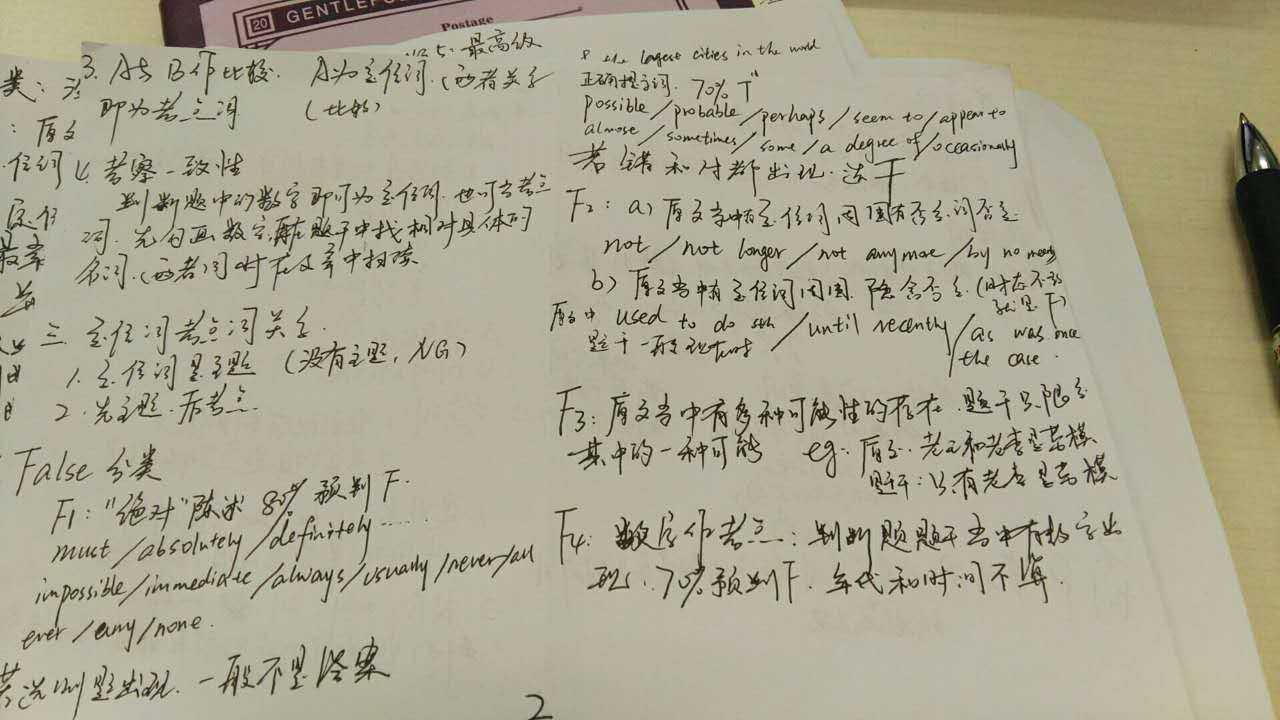 20 GENTLE
Postage
类:
: 原文
位词
定位
最高
3. A与B作比较. A为定位词.(两者关系
即为考点词 (比较)
4. 考察一致性
判断题中的数字即可为定位词. 也可当考点
词. 先勾画数字,再在题干中找相对具体的
名词.(两者)同时在文章中扫读
三. 定位词考点词关系.
1. 定位词是主题 (没有主题, NG)
2. 先主题. 后考点.
False 分类
F1: "绝对"陈述 80% 预判 F.
must / absolutely / definitely .....
impossible / immediate / always / usually / never / all
ever / any / none.
若选择题出现. 一般不是答案
2
5. 最高级
the largest cities in the world
正确提示词. 70% T
possible / probable / perhaps / seem to / appear to
almose / sometimes / some / a degree of / occasionally
若错和对都出现. 选干
F2: a) 原文当中有定位词周围有否定词否定.
not / not longer / not anymore / by no means
b) 原文当中有定位词周围. 隐含否定.(时态不一致就是F)
原文中 used to do sth / until recently / as was once
题干一般现在时 the case.
F3: 原文当中有多种可能性的存在. 题干只限定
其中的一种可能 eg: 原文: 老王和老李是劳模
题干: 只有老李是劳模
F4: 数字作考点: 判断题题干当中有数字出
现. 70% 预判 F. 年代和时间不算.